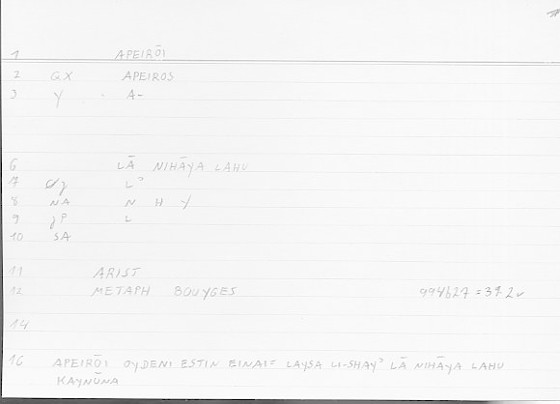 1 APEIRŌI
2 GX APEIROS
3 Y A-
6 LĀ NIHĀYA LAHU
7 L⁾
8 NA N H Y
9 JP L
10 SA
11 ARIST
12 METAPH BOUYGES 994b27 = 37 2
14
16 APEIRŌI OYDENI ESTIN EINAI = LAYSA LI-SHAY⁾ LĀ NIHĀYA LAHU
KAYNŪNA